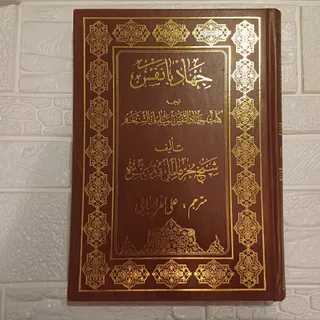 جهاد با نفس
ترجمه
کتاب جهاد النفس وسائل الشیعه
تألیف
شیخ حر عاملی
مترجم : علی افراسیابی